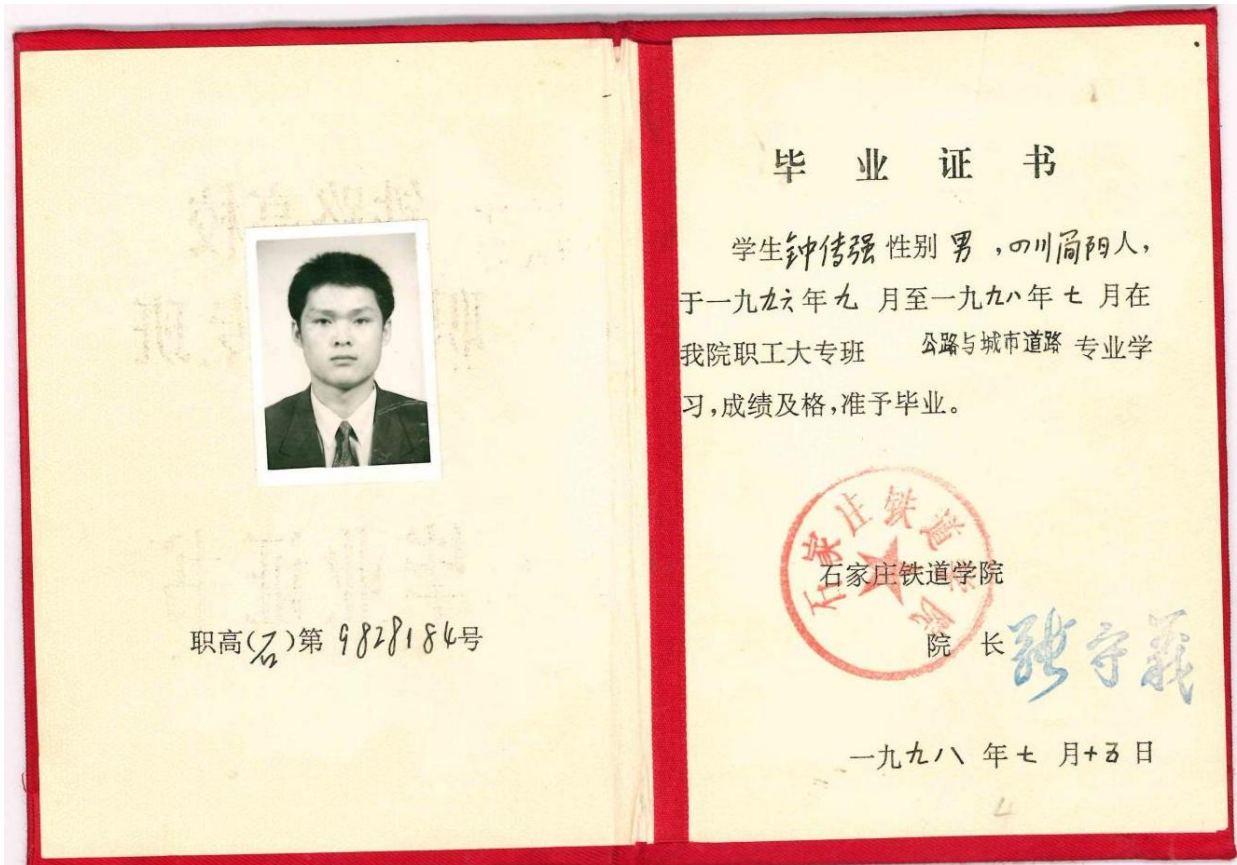 职高(石)第 9828184号
毕业证书
学生钟传强性别 男 ,四川简阳人,
于一九九六年九 月至一九九八年七 月在
我院职工大专班 公路与城市道路 专业学
习,成绩及格,准予毕业。
石家庄铁道学院
石家庄铁道学院
院 长 张守義
一九九八 年七 月十五日